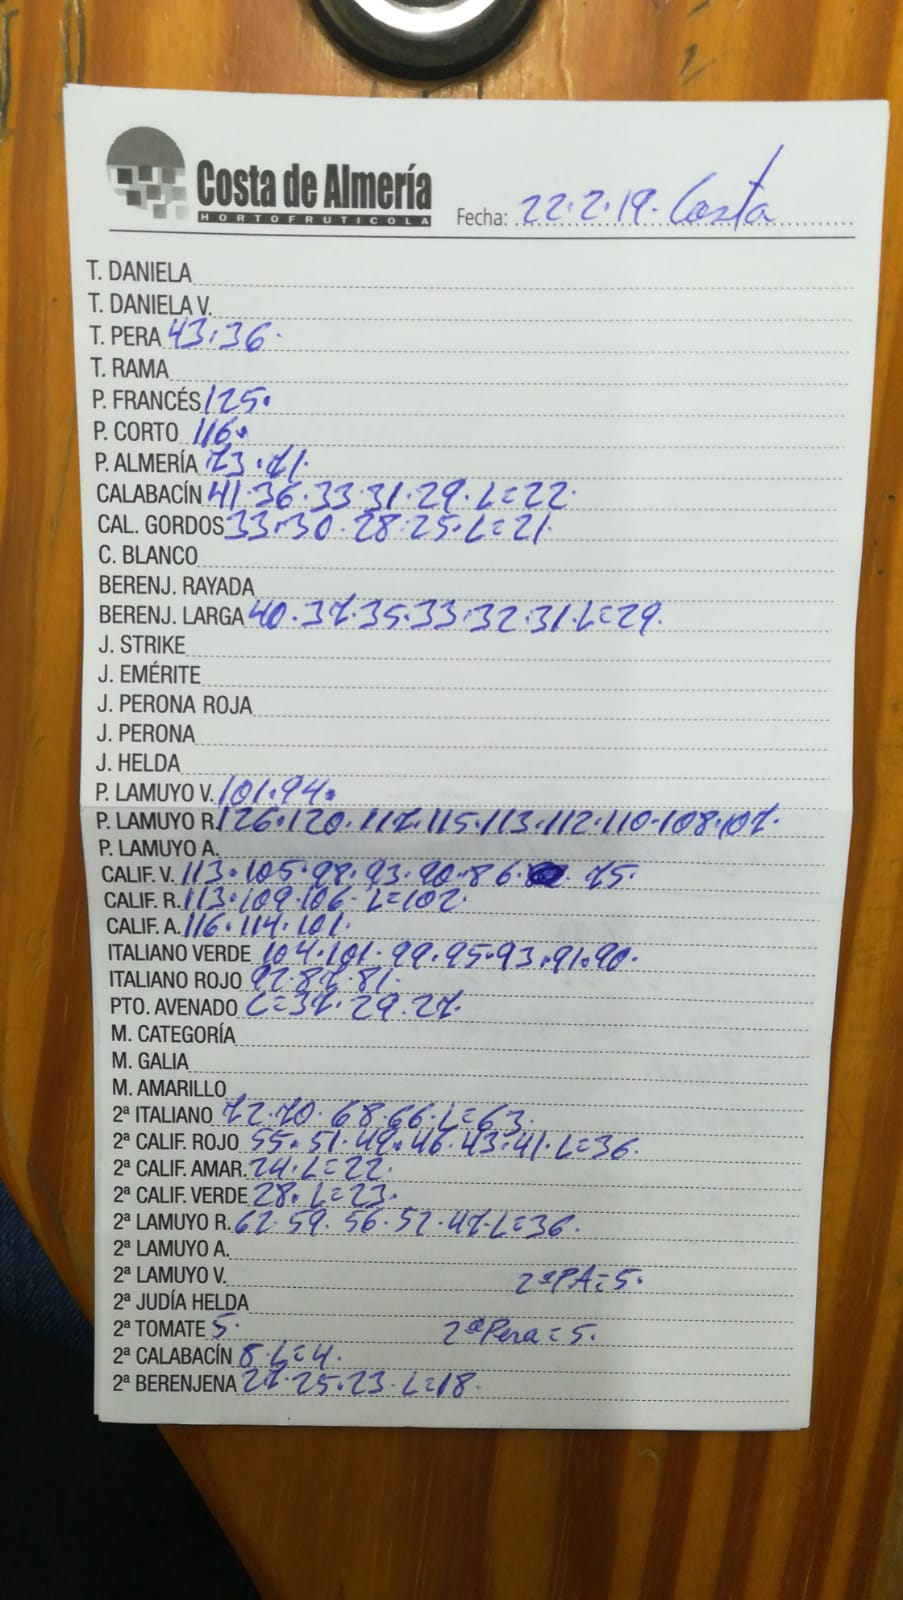 Costa de Almería
HORTOFRUTICOLA
Fecha: 22.2.19. Costa
T. DANIELA
T. DANIELA V.
T. PERA 43.36.
T. RAMA
P. FRANCÉS 125.
P. CORTO 116.
P. ALMERÍA 73.71.
CALABACÍN 41.36.33.31.29.L=22.
CAL. GORDOS 33.30.28.25.L=21.
C. BLANCO
BERENJ. RAYADA
BERENJ. LARGA 40.37.35.33.32.31.L=29.
J. STRIKE
J. EMÉRITE
J. PERONA ROJA
J. PERONA
J. HELDA
P. LAMUYO V. 101.94.
P. LAMUYO R. 126.120.117.115.113.112.110.108.107.
P. LAMUYO A.
CALIF. V. 113.105.98.93.90.86. 75.
CALIF. R. 113.109.106.L=102.
CALIF. A. 116.114.101.
ITALIANO VERDE 104.101.99.95.93.91.90.
ITALIANO ROJO 92.87.81.
PTO. AVENADO L=37.29.27.
M. CATEGORÍA
M. GALIA
M. AMARILLO
2ª ITALIANO 72.70.68.66.L=63.
2ª CALIF. ROJO 55.51.49.46.43.41.L=36.
2ª CALIF. AMAR. 24.L=22.
2ª CALIF. VERDE 28.L=23.
2ª LAMUYO R. 62.59.56.52.47.L=36.
2ª LAMUYO A.
2ª LAMUYO V. 2ªPA=5.
2ª JUDÍA HELDA
2ª TOMATE 5. 2ªPera=5.
2ª CALABACÍN 8.L=4.
2ª BERENJENA 27.25.23.L=18.